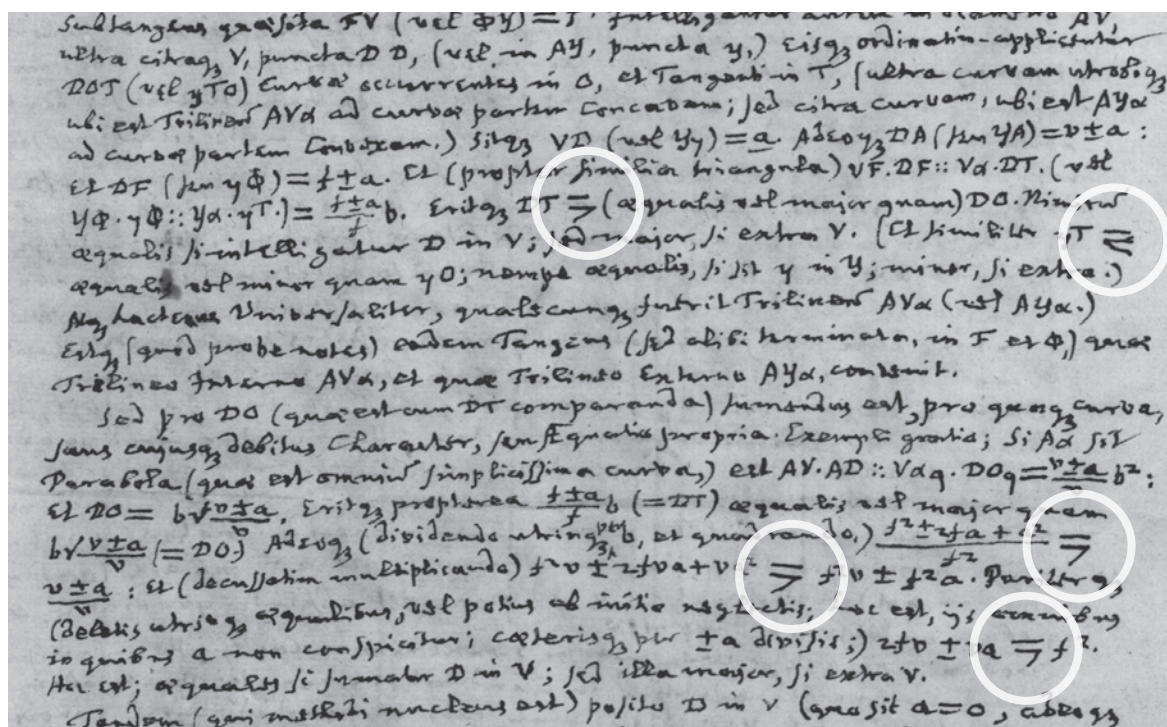 Subtangens quæsita FV (vel ΦY)=f. Intelligantur autem in Diametro AV,
ultra citraqꝫ V, puncta D D, (vel, in AY, puncta y,) Eisqꝫ ordinatim-applicentur
DOT (vel yTO) Curvæ occurrentes in O, et Tangenti in T, (ultra curvam utrobiqꝫ
ubi est Trilineū AVα ad curvæ partem Concavam; sed citra curvam, ubi est AYα
ad curvæ partem Convexam.) Sitqꝫ VD (vel Yy)=a. Adeoqꝫ DA (seu yA)=v±a:
Et DF (seu yΦ)=f±a. Et (propter similia triangula) VF.DF::Vα.DT. (vel
YΦ.yΦ::Yα.yT.)=\frac{f±a}{f}b. Eritqꝫ DT ⋝ (æqualis vel major quam) DO. Nimirū
æqualis si intelligatur D in V; sed major, si extra V. (Et similiter yT ⋜
æqualis vel minor quam yO; nempe æqualis, si sit y in Y; minor, si extra.)
Atqꝫ hactenus Universaliter, qualecunqꝫ fuerit Trilineū AVα (vel AYα.)
Estqꝫ (quod probe notes) eadem Tangens (sed alibi terminata, in F et Φ,) quæ
Trilineo Interno AVα, et quæ Trilineo Externo AYα, convenit.
Sed pro DO (quæ est cum DT comparanda) sumendus est, pro quaqꝫ curva,
suus cujusqꝫ debitus Character, seu Æquatio propria. Exempli gratia; Si Aα sit
Parabola (quæ est omniū simplicissima curva,) est AV.AD::Vαq.DOq=\frac{v±a}{v}b²:
Et DO=b√\frac{v±a}{v}. Eritqꝫ propterea \frac{f±a}{f}b (=DT) æqualis vel major quam
b√\frac{v±a}{v} (=DO.) Adeoqꝫ (dividendo utrinqꝫ per b, et quadrando,) \frac{f²±2fa+a²}{f²} ⋝
\frac{v±a}{v}: Et (decussatim multiplicando) f²v±2fva+va² ⋝ f²v±f²a. Pariterqꝫ
(deletis utrinqꝫ æqualibus, vel potius ab initio neglectis; hoc est, ijs omnibus
in quibus a non conspicitur; cæterisqꝫ per ±a divisis;) 2fv±va ⋝ f².
Hoc est; æquales si sumatur D in V; sed illa major, si extra V.
Tandem (qui methodi nucleus est) posito D in V (quo sit a=0, adeoqꝫ